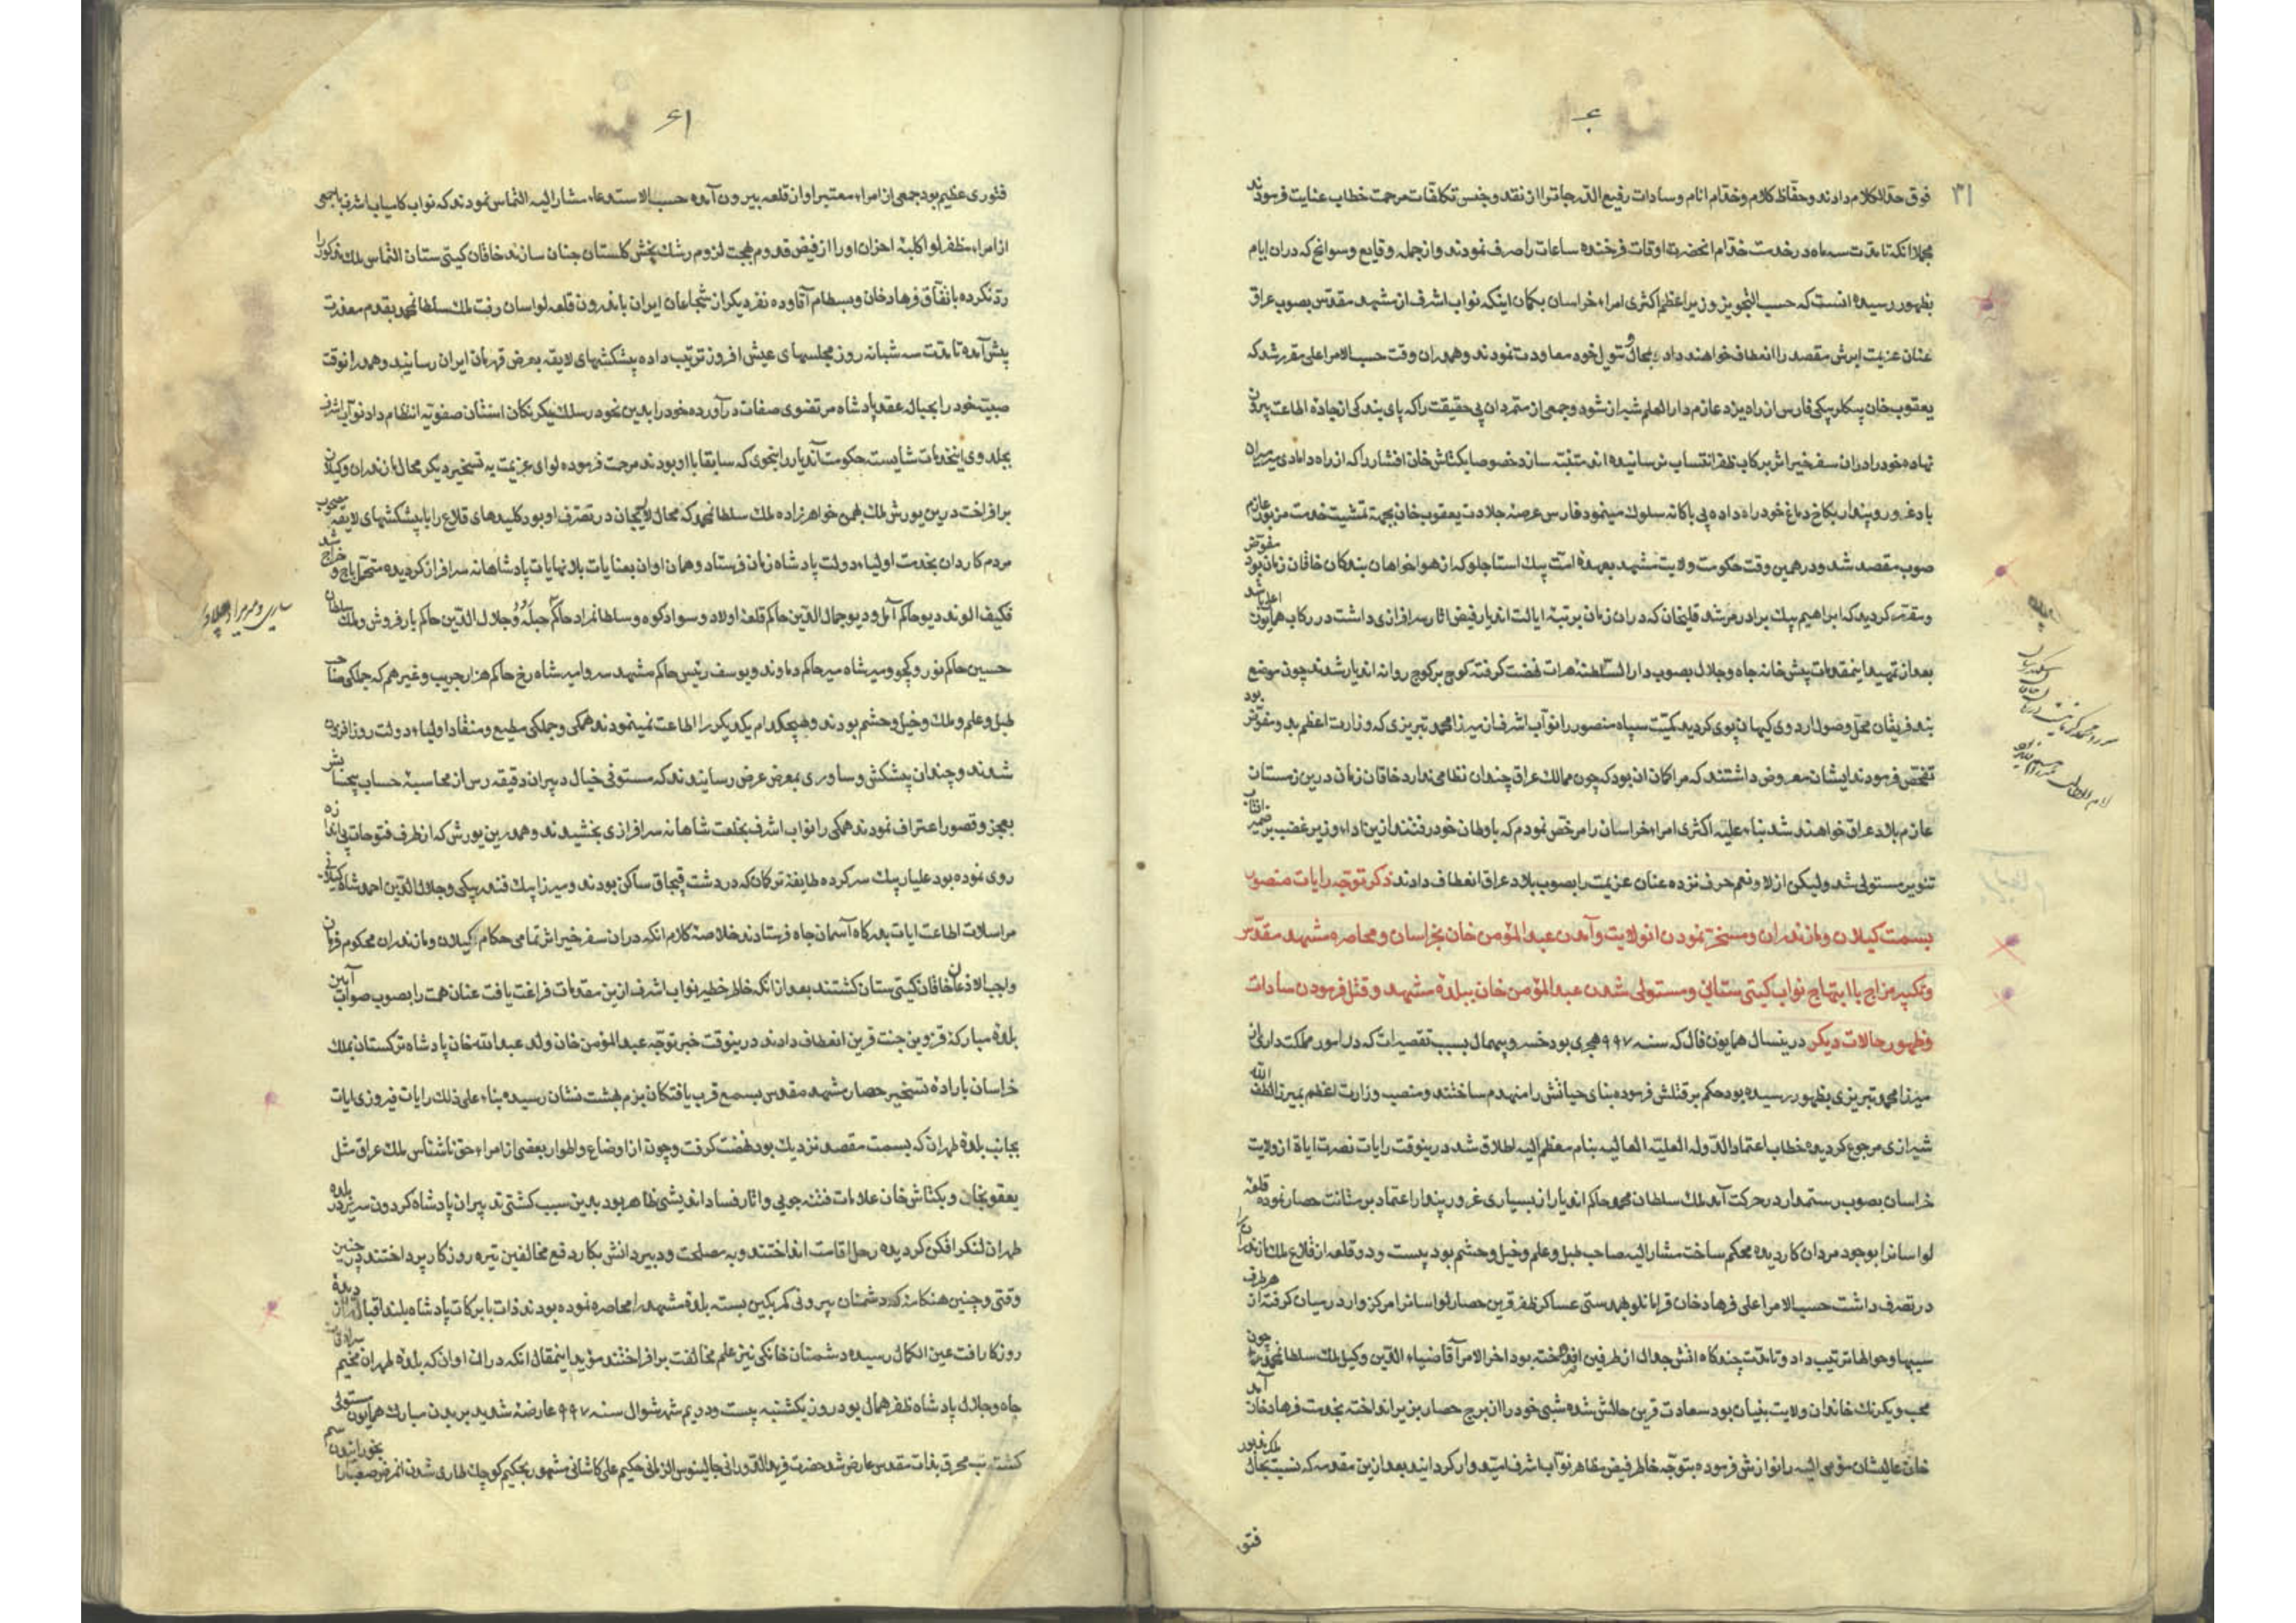 ۶۰
۳۱
فوق حد الکلام دادند و حفاظ کلام و خدام انام و سادات رفیع الدرجات را از نقد و جنس تکلفات مرحمت خطاب عنایت فرمودند
مجملا آنکه تا مدت سه ماه در خدمت خدام انحضرت اوقات فرخنده ساعات را صرف نمودند و از جمله وقایع و سوانح که دران ایام
بظهور رسیده انست که حسب التجویز وزیر اعظم اکثری امراء خراسان بکمان اینکه نواب اشرف از مشهد مقدس بصوب عراق
عنان عزیمت ابرش مقصد را انعطاف خواهند داد بمحال و تیول خود معاودت نمودند و همدران وقت حسب الامر اعلی مقرر شد که
یعقوب خان بیکلربیکی فارس از راه یزد عازم دار العلم شیراز شود و جمعی از متمردان بی حقیقت را که پای بندکی از جاده اطاعت بیرون
نهاده خود را دران سفر خیر اثر برکاب ظفر انتساب نرسانیده اند متنبه سازد خصوصا بکتاش خان افشار را که از راه دامادی میرمیران
باد غرور و پندار بکاخ دماغ خود راه داده بی باکانه سلوک مینمود فارس عرصه جلادت یعقوب خان بجهة تمشیت خدمت مزبور عازم
صوب مقصد شد و در همین وقت حکومت ولایت مشهد بعهده امت بیک استاجلو که از هواخواهان بندکان خاقان زمان بود مفوض شد
و مقرر کردید که ابراهیم بیک برادر مرشد قلیخان که دران زمان برتبه ایالت اندیار فیض اثار سرافرازی داشت در رکاب همایون اعلی باشد
بعد از تمهید اینمقدمات پیش خانه جاه و جلال بصوب دار السلطنه هرات نهضت کرفته کوچ بر کوچ روانه اندیار شدند چون موضع
بند فریمان محل وصول اردوی کیهان پوی کردید کمیت سپاه منصور را نواب اشرف از میرزا محمد تبریزی که وزارت اعظم بدو مفوض بود
تفحص فرمودند ایشان معروض داشتند که مرا کمان ان بود که چون ممالک عراق چندان نظامی ندارد خاقان زمان درین زمستان
عازم بلاد عراق خواهند شد بناء علیه اکثری امراء خراسان را مرخص نمودم که باوطان خود رفتند ازین اداء وزیر غضب بر ضمیر افتاب
تنویر مستولی شد ولیکن از لا و نعم حرف نزده عنان عزیمت را بصوب بلاد عراق انعطاف دادند ذکر توجه رایات منصور
بسمت کیلان و مازندران و مسخر نمودن انولایت و آمدن عبد المؤمن خان بخراسان و محاصره مشهد مقدس
و تکسر مزاج با ابتهاج نواب کیتی ستانی و مستولی شدن عبد المؤمن خان ببلده مشهد و قتل فرمودن سادات
و ظهور حالات دیکر درینسال همایون فال که سنه ۹۹۷ هجری بود خسرو بیهمال بسبب تقصیرات که در امور مملکت داری از
میرزا محمد تبریزی بظهور رسیده بود حکم بر قتلش فرموده بنای حیاتش را منهدم ساختند و منصب وزارت اعظم بمیرزا لطف الله
شیرازی مرجوع کردیده خطاب اعتماد الدوله العلیة العالیه بنام معظم الیه اطلاق شد درینوقت رایات نصرت ایاة از ولایت
خراسان بصوب رستمدار در حرکت آمد ملک سلطان محمد حاکم اندیار از بسیاری غرور و پندار اعتماد بر متانت حصار نموده قلعه
لواسانرا بوجود مردان کاردیده محکم ساخت مشارالیه صاحب طبل و علم و خیل و حشم بود بیست و دو قلعه از قلاع ملک مازندران را
در تصرف داشت حسب الامر اعلی فرهادخان قرامانلو بهمدستی عساکر ظفر قرین حصار لواسانرا مرکزوار در میان کرفته از هر طرف
سیبها و حوالها ترتیب داد و تا مدت چند کاه اتش جدال از طرفین افروخته بود اخر الامر آقا ضیاء الدین وکیل ملک سلطان محمد چون
محب و یکرنک خاندان ولایت بنیان بود سعادت قرین حالش شده شبی خود را از برج حصار بزیر انداخته بخدمت فرهادخان آمد
خان عالیشان مومی الیه را نوازش فرموده بتوجه خاطر فیض مظاهر نواب اشرف امیدوار کردانید بعد ازین مقدمه که نسبت بحال ملک مزبور
فتو
۶۱
فتوری عظیم بود جمعی از امراء معتبر او از قلعه بیرون آمده حسب الاستدعاء مشار الیه التماس نمودند که نواب کامیاب اشرف با جمعی
از امراء مظفر لوا کلبه احزان او را از فیض قدوم بهجت لزوم رشک بخش کلستان جنان سازند خاقان کیتی ستان التماس ملک مذکور را
رد نکرده باتفاق فرهادخان و بسطام آقا و ده نفر دیکر از شجاعان ایران باندرون قلعه لواسان رفت ملک سلطان محمد بقدم معذرت
پیش آمده تا مدت سه شبانه روز مجلسهای عیش افروز ترتیب داده پیشکشهای لایقه بعرض قهرمان ایران رسانید و همدرانوقت
صبیه خود را بحباله عقد پادشاه مرتضوی صفات درآورده خود را بدین نحو در سلک یکرنکان استان صفویه انتظام داد نواب اشرف
بجلدوی اینخدمات شایسته حکومت آندیار را بنحوی که سابقا با او بودند مرحمت فرموده لوای عزیمت به تسخیر دیکر محال مازندران و کیلان
برافراخت درین یورش ملک بهمن خواهرزاده ملک سلطان محمد که محال لاریجان در تصرف او بود کلیدهای قلاع را با پیشکشهای لایقه مصحوب
مردم کاردان بخدمت اولیاء دولت پادشاه زمان فرستاد و همان اوان بعنایات بلانهایات پادشاهانه سرافراز کردیده متحمل باج و خراج شد
فکیف الوند دیو حاکم آمل و دیو جمال الدین حاکم قلعه اولاد و سوادکوه و سلطانمراد حاکم جبله رود و جلال الدین حاکم بارفروش و ملک سلطان
حسین حاکم نور و کجور و میر شاه میر حاکم دماوند و یوسف رئیس حاکم مشهد سر و امیر شاه رخ حاکم هزارجریب و غیرهم که جملکی صاحب
طبل و علم و ملک و خیل و حشم بودند و هیچکدام یکدیکر را اطاعت نمینمودند همکی و جملکی مطیع و منقاد اولیاء دولت روزافزون
شدند و چندان پیشکش و ساوری بمعرض عرض رسانیدند که مستوفی خیال دبیران دقیقه رس از محاسبه حساب بیحسابش
بعجز و قصور اعتراف نمودند همکی را نواب اشرف بخلعت شاهانه سرافرازی بخشیدند و همدرین یورش که از طرف فتوحات بی اندازه
روی نموده بود علیار بیک سرکرده طایفه ترکان که در دشت قبچاق ساکن بودند و میرزا بیک فندرسکی و جلال الدین احمد شاه کیلانی
مراسلات اطاعت ایات بدرکاه آسمان جاه فرستادند خلاصه کلام انکه دران سفر خیر اثر تمامی حکام کیلان و مازندران محکوم فرمان
واجب الاذعان خاقان کیتی ستان کشتند بعد از انکه خاطر خطیر نواب اشرف ازین مقدمات فراغت یافت عنان همت را بصوب صواب آیین
بلده مبارکه قزوین جنت قرین انعطاف دادند درینوقت خبر توجه عبد المؤمن خان ولد عبد الله خان پادشاه ترکستان بملک
خراسان باراده تسخیر حصار مشهد مقدس بسمع قرب یافتکان بزم بهشت نشان رسیده بناء علی ذلک رایات فیروزی ایات
بجانب بلده طهران که بسمت مقصد نزدیک بود نهضت کرفت و چون از اوضاع و اطوار بعضی از امراء حق ناشناس ملک عراق مثل
یعقوبخان و بکتاش خان علامات فتنه جویی و اثار فساد اندیشی ظاهر بود بدین سبب کشتی تدبیران پادشاه کردون سریر در بلده
طهران لنکر افکن کردیده رحل اقامت انداختند و به مصلحت و دبیر دانش بکار دفع مخالفین تیره روزکار پرداختند در چنین
وقتی و چنین هنکامه که دشمنان بیرونی کمر بکین بسته بلده مشهد را محاصره نموده بودند ذات با برکات پادشاه بلند اقبال را از دیده
روزکار افت عین الکمال رسیده دشمنان خانکی نیز علم مخالفت برافراختند مؤید اینمقال انکه دران اوان که بلده طهران مخیم سرادقات
جاه و جلال پادشاه ظفر همال بود روز یکشنبه بیست و دویم شهر شوال سنه ۹۹۷ عارضه شدید بر بدن مبارک همایون مستولی
کشته تب محرق بذات مقدس عارض شد حضرت فرید الدورانی جالینوس الزمانی حکیم علی کاشانی مشهور بحکیم کوچک طاری شدن انمرض صعب را